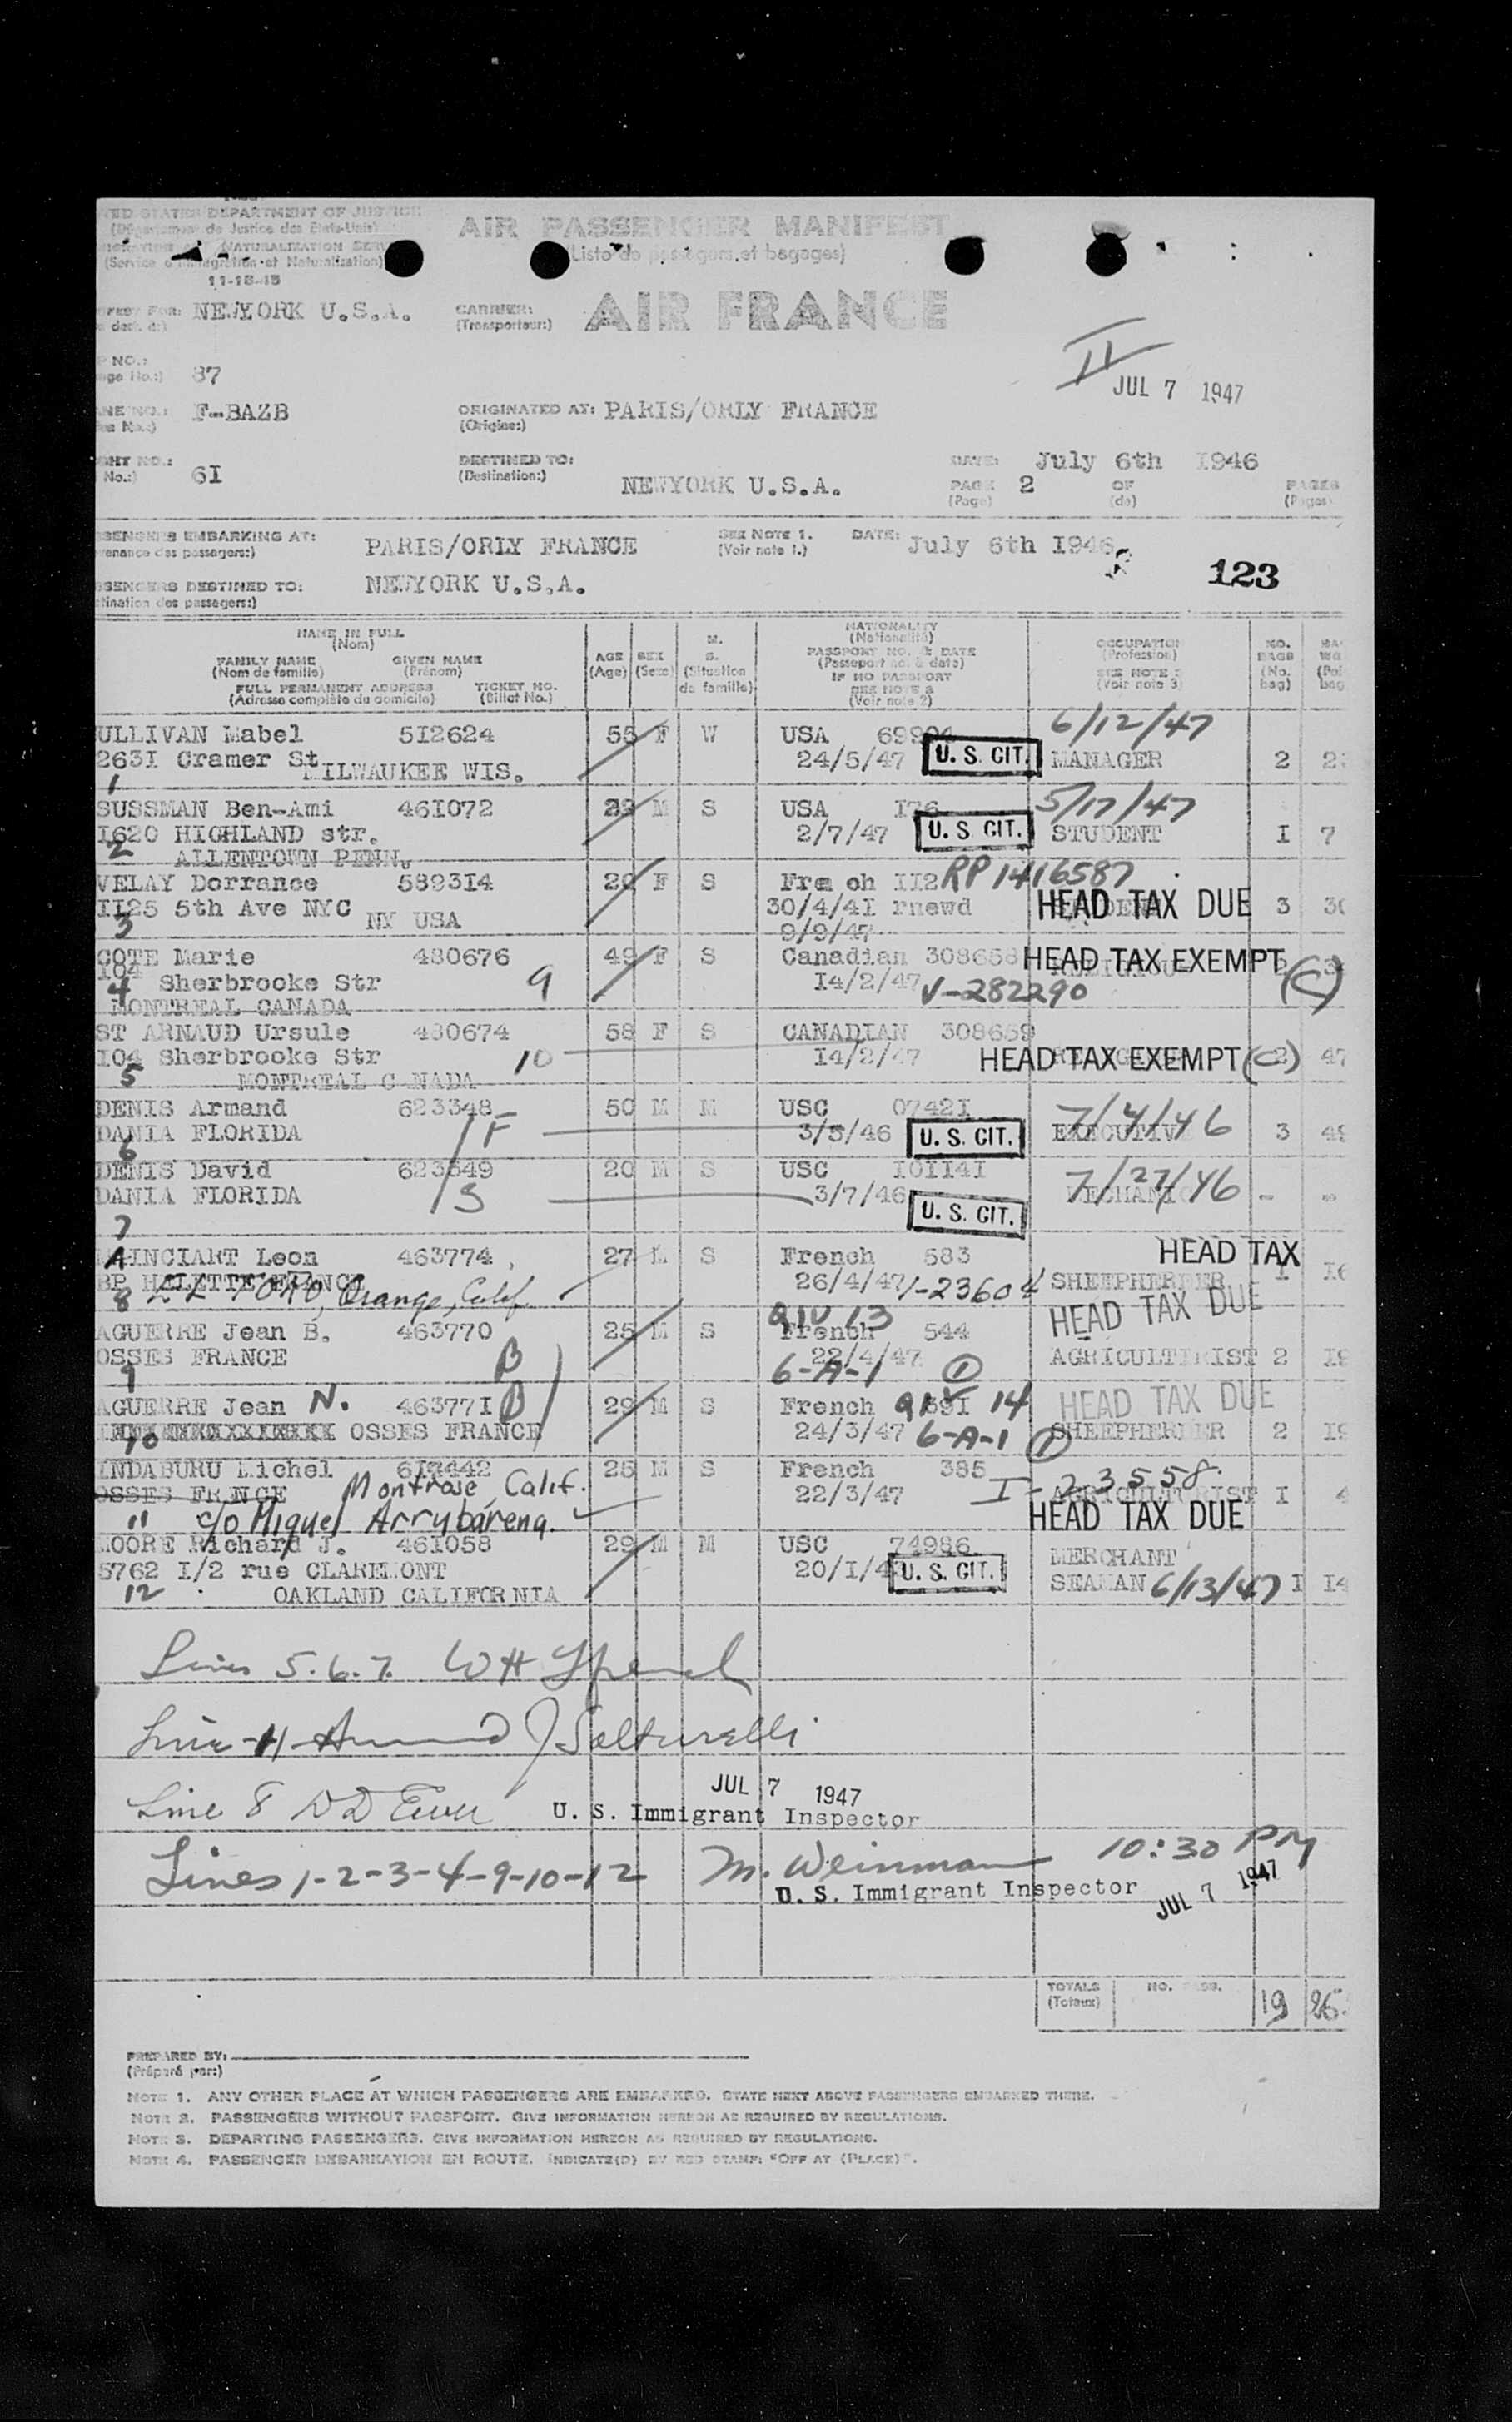 TED STATES DEPARTMENT OF JUSTICE
(Département de Justice des Etats-Unis)
NATURALIZATION SERV
(Service d'Immigration et Naturalisation)
11-18-45
AIR PASSENGER MANIFEST
(Liste de passagers et bagages)
NEWYORK U.S.A.
CARRIER:
(Transporteur:)
AIR FRANCE
NO.:
87
II
JUL 7 1947
F-BAZB
ORIGINATED AT: PARIS/ORLY FRANCE
(Origine:)
GHT NO.:
No.:) 6I
DESTINED TO:
(Destination:) NEWYORK U.S.A.
DATE: July 6th I946
PAGE 2 OF PAGES
(Page) (de) (Pages)
SSENGERS EMBARKING AT: PARIS/ORLY FRANCE
venance des passagers:)
SEE NOTE 1. DATE: July 6th I946
(Voir note 1.)
123
SSENGERS DESTINED TO: NEWYORK U.S.A.
tination des passagers:)
NAME IN FULL
(Nom)
FAMILY NAME GIVEN NAME
(Nom de famille) (Prénom)
FULL PERMANENT ADDRESS TICKET NO.
(Adresse complète du domicile) (Billet No.)
AGE (Age)
SEX (Sexe)
M. S. (Situation de famille)
NATIONALITY
(Nationalité)
PASSPORT NO. & DATE
(Passeport no. & date)
IF NO PASSPORT
SEE NOTE 2
(Voir note 2)
OCCUPATION
(Profession)
SEE NOTE 3
(Voir note 3)
NO. BAGS (No. bag)
ULLIVAN Mabel 5I2624 55 F W USA 6/12/47
263I Cramer St MILWAUKEE WIS. 24/5/47 U. S. CIT. MANAGER 2
1
SUSSMAN Ben-Ami 46I072 M S USA I76 5/17/47
I620 HIGHLAND str. 2/7/47 U. S. CIT. STUDENT I 7
2 ALLENTOWN PENN.
VELAY Dorrance 5893I4 20 F S Fre ch II2 RP 1416587
II25 5th Ave NYC 30/4/4I rnewd HEAD TAX DUE 3
3 NY USA 9/9/47
COTE Marie 480676 49 F S Canadian 308658 HEAD TAX EXEMPT (C)
104 Sherbrooke Str 9 I4/2/47 V-282290
4 MONTREAL CANADA
ST ARNAUD Ursule 480674 58 F S CANADIAN 308659
104 Sherbrooke Str 10 I4/2/47 HEAD TAX EXEMPT (C) 47
5 MONTREAL C NADA
DENIS Armand 623348 50 M M USC 0742I 7/4/46
DANIA FLORIDA F 3/5/46 U. S. CIT. EXECUTIVE 3
6
DENIS David 20 M S USC I0II4I 7/27/46
DANIA FLORIDA S 3/7/46 U. S. CIT. MECHANIC -
7
INCIART Leon 463774 27 M S French 583 HEAD TAX
26/4/47 SHEEPHERDER I I6
8 EL TORO, Orange, Calif. HEAD TAX DUE
AGUERRE Jean B. 463770 25 M S French 544 QIV 13
OSSES FRANCE B 22/4/47 AGRICULTURIST 2
9 6-A-1 (1)
AGUERRE Jean N. 46377I B 29 M S French 14 HEAD TAX DUE
OSSES FRANCE 24/3/47 6-A-1 (1) SHEEPHERDER 2
10
INDABURU Michel 25 M S French 385 I-23558
OSSES FR NCE Montrose, Calif. 22/3/47 AGRICULTURIST I
11 c/o Miguel Arrubarena. HEAD TAX DUE
MOORE Richard J. 46I058 29 M M USC 74986 MERCHANT
5762 I/2 rue CLAREMONT 20/I/4 U. S. CIT. SEAMAN 6/13/47 I I4
12 OAKLAND CALIFORNIA
Lines 5.6.7. WH
Line 11 Armand J Salturelli
Line 8
JUL 7 1947
U. S. Immigrant Inspector
Lines 1-2-3-4-9-10-12 M. Weinman 10:30 PM
U. S. Immigrant Inspector JUL 7 1947
TOTALS NO. PASS. 19
(Totaux)
PREPARED BY:
(Préparé par:)
NOTE 1. ANY OTHER PLACE AT WHICH PASSENGERS ARE EMBARKED. STATE NEXT ABOVE PASSENGERS EMBARKED THERE.
NOTE 2. PASSENGERS WITHOUT PASSPORT. GIVE INFORMATION HEREON AS REQUIRED BY REGULATIONS.
NOTE 3. DEPARTING PASSENGERS. GIVE INFORMATION HEREON AS REQUIRED BY REGULATIONS.
NOTE 4. PASSENGER DEBARKATION EN ROUTE. INDICATE(D) BY RED STAMP: "OFF AT (PLACE)".